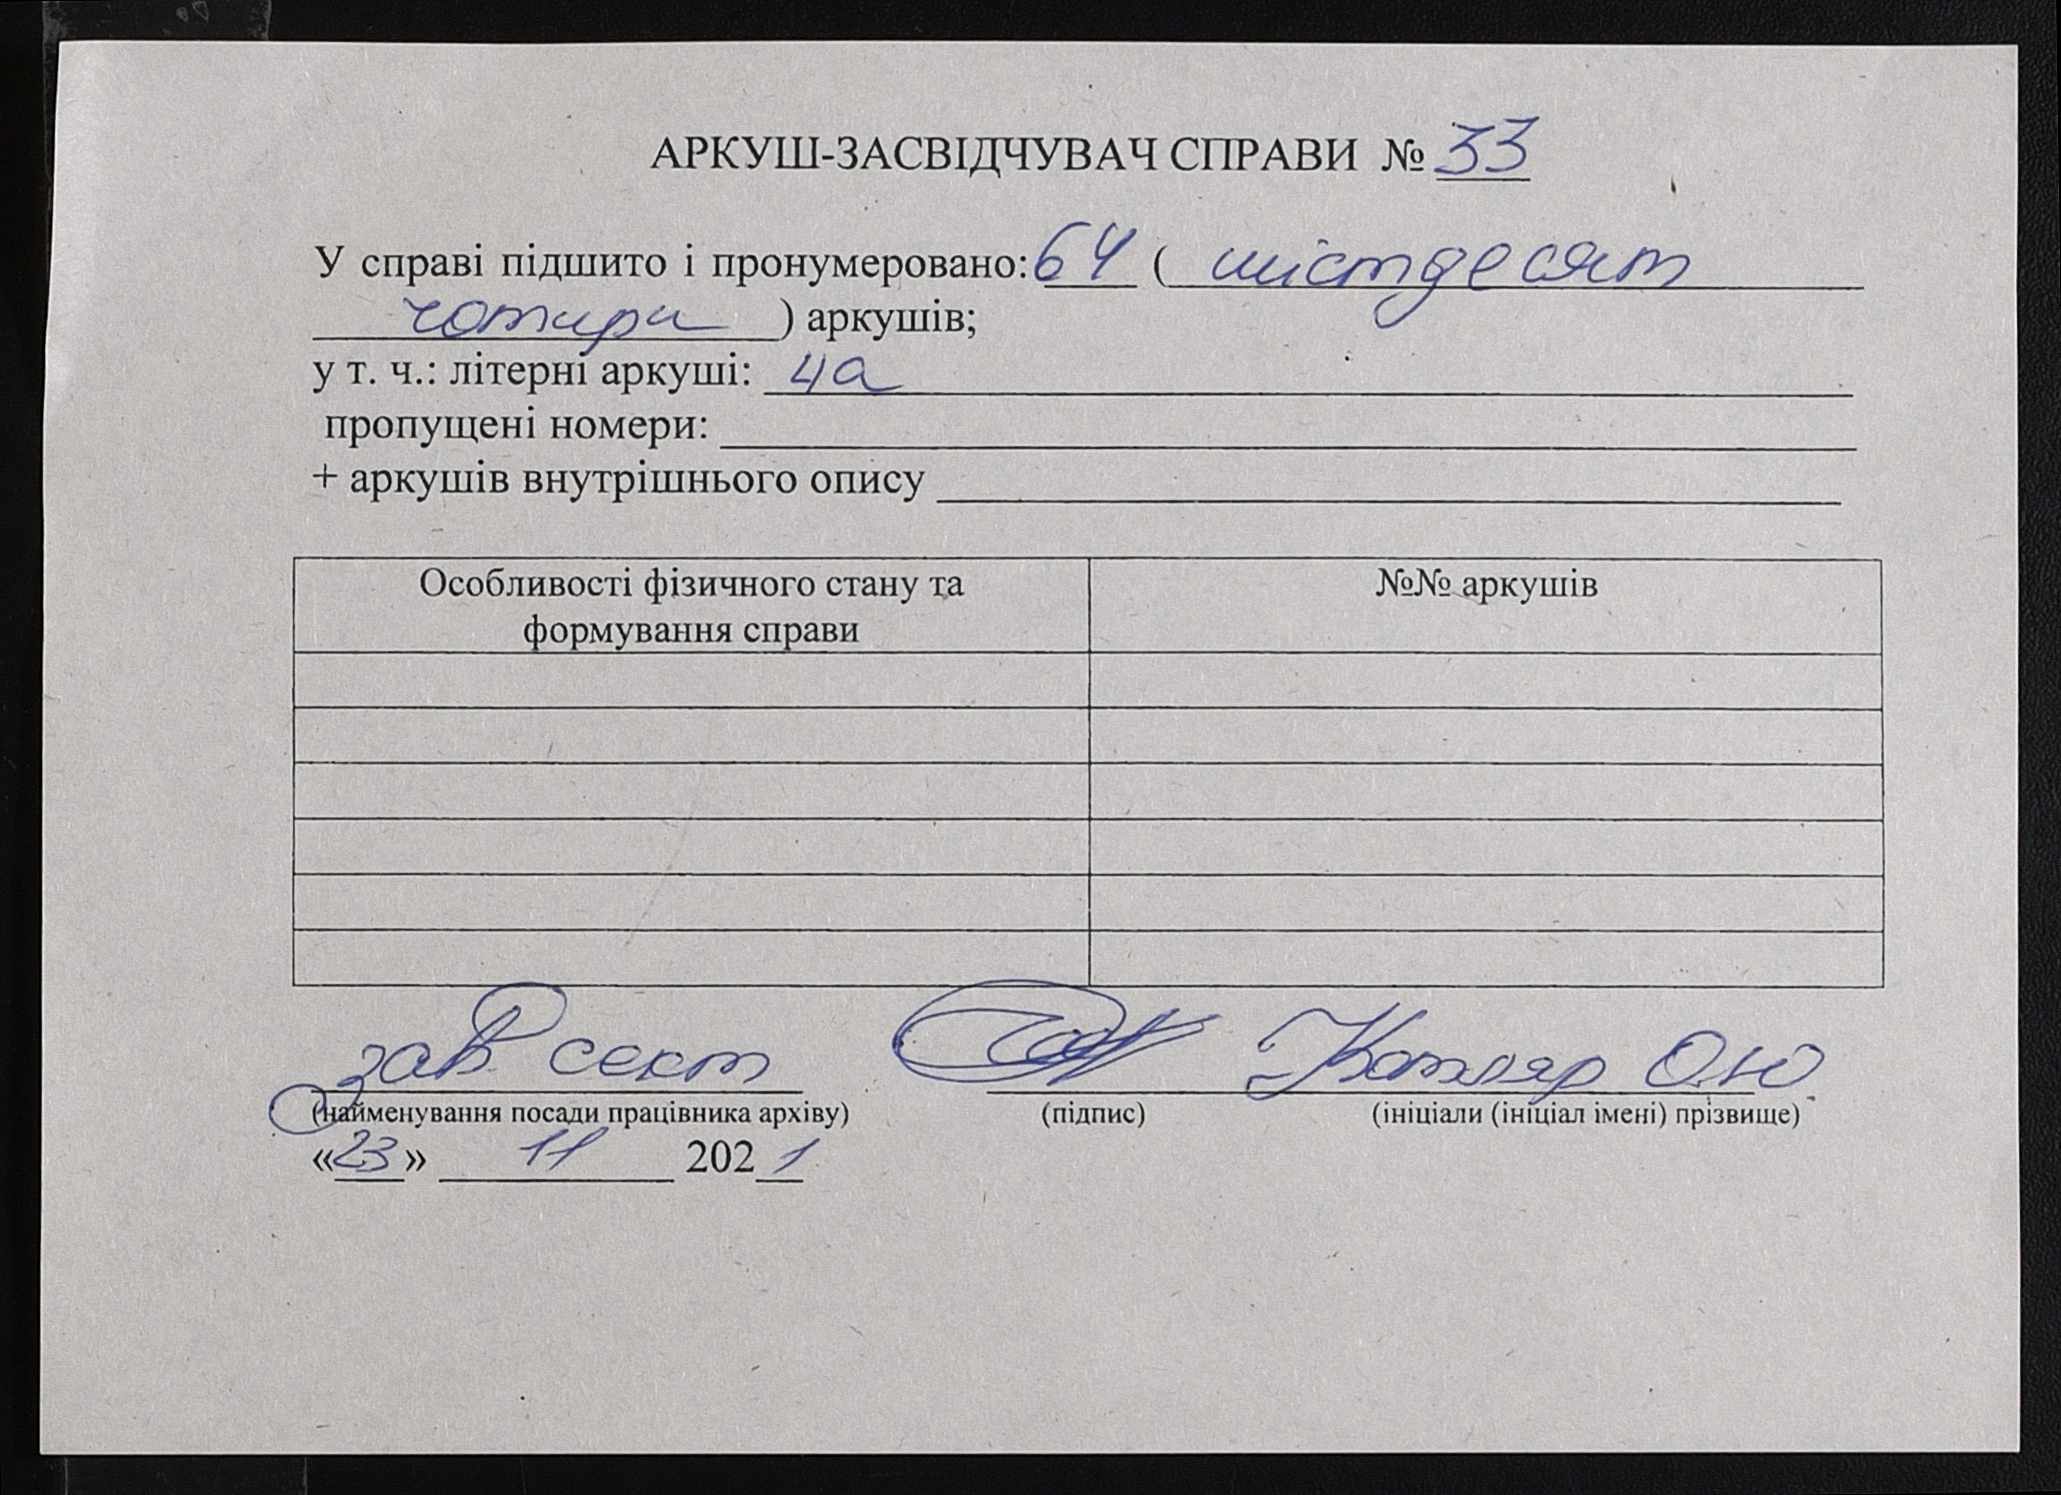 АРКУШ-ЗАСВІДЧУВАЧ СПРАВИ № 33
У справі підшито і пронумеровано: 64 ( шістдесят
чотири ) аркушів;
у т. ч.: літерні аркуші: 4а
пропущені номери:
+ аркушів внутрішнього опису
Особливості фізичного стану та №№ аркушів
формування справи
зав сект Котляр О.Ю
(найменування посади працівника архіву) (підпис) (ініціали (ініціал імені) прізвище)
«23» 11 2021